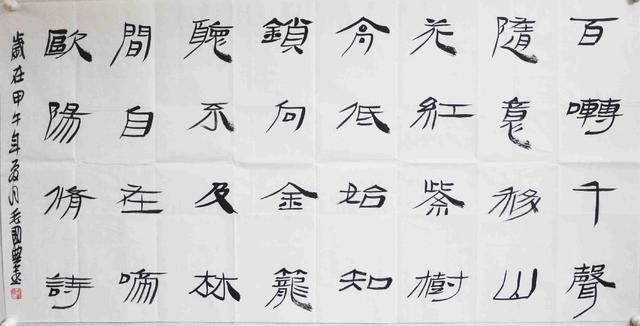 百囀千聲
隨意移山
花紅紫樹
高低始知
鎖向金籠
聽不及林
間自在啼
歐陽脩詩
歲在甲午年夏月毛國典書